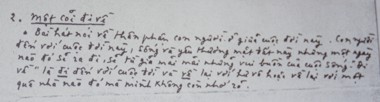 2. Một cõi đi về
Bài hát nói về thân phận con người ở giữa cuộc đời này. Con người
đến với cuộc đời này, sống và yêu thương mặt đất này nhưng một ngày
nào đó sẽ ra đi, sẽ từ giã mãi mãi những vui buồn của cuộc sống. Đi
về" là đi đến với cuộc đời và về lại với hư vô hoặc về lại với một
quê nhà nào đó mà mình không còn nhớ rõ.